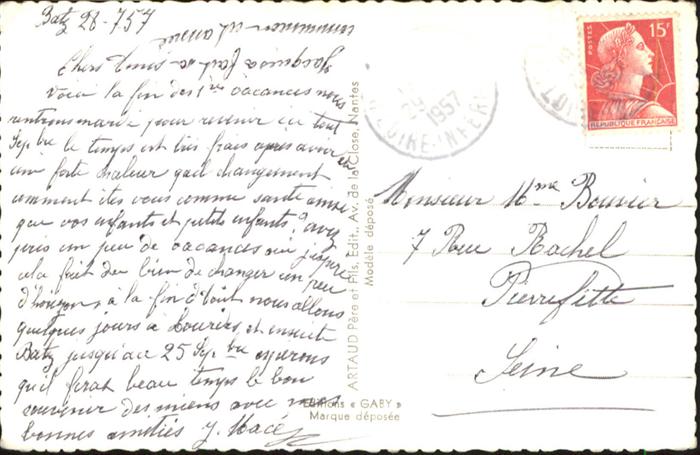 Batz 28-7 57
Chers Amis
Voici la fin des 1ères vacances nous
rentrons mardi pour revenir en tout
Sepbre le temps est très frais après avoir eu
une forte chaleur quel changement
comment êtes vous comme santé ainsi
que vos enfants et petits enfants, avez
pris un peu de vacances oui j'espère
cela fait du bien de changer un peu
d'horizon, à la fin d'août nous allons
quelques jours à Louviers, et ensuite
Batz jusqu'au 25 Sepbre espérons
qu'il ferat beau temps le bon
souvenir des miens avec mes
bonnes amitiés J. Macé
Jacquie a fait sa
communion cet année
ARTAUD Père et Fils, Edit., Av. de la Close, Nantes
Modèle déposé
Editions « GABY »
Marque déposée
29
1957
LOIRE-INFERE
POSTES
15F
REPUBLIQUE FRANÇAISE
Monsieur Mme Bouvier
7 Rue Rachel
Pierrefitte
Seine